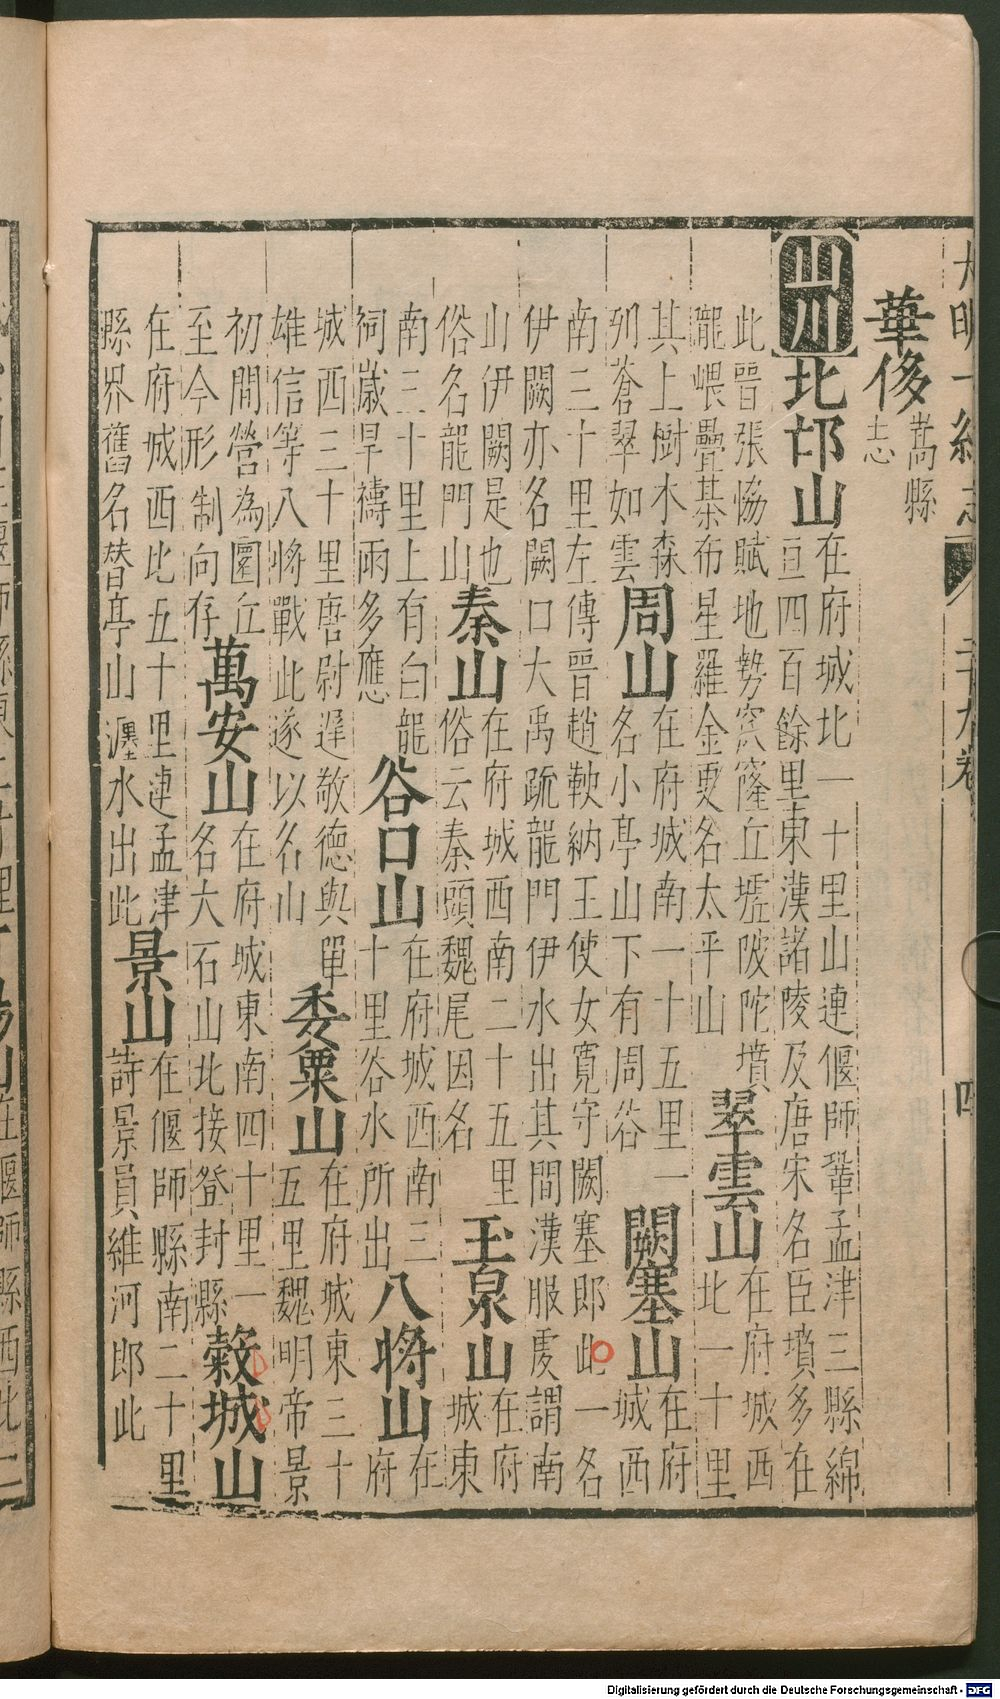 大明一統志 二十九卷 四
華侈 嵩縣
志
山川 北邙山 在府城北一十里山連偃師鞏孟津三縣綿
亘四百餘里東漢諸陵及唐宋名臣墳多在
此晉張協賦地勢窊窿丘墟陂陀墳
隴㟪疊棊布星羅金更名太平山
翠雲山 在府城西
北一十里
其上樹木森
列蒼翠如雲
周山 在府城南一十五里一
名小亭山下有周谷
闕塞山 在府
城西
南三十里左傳晉趙鞅納王使女寬守闕塞郎此一名
伊闕亦名闕口大禹疏龍門伊水出其間漢服虔謂南
山伊闕是也
俗名龍門山
秦山 在府城西南二十五里
俗云秦頭魏尾因名
玉泉山 在府
城東
南三十里上有白龍
祠歲旱禱雨多應
谷口山 在府城西南三
十里谷水所出
八將山 在
府
城西三十里唐尉遲敬德與單
雄信等八將戰此遂以名山
委粟山 在府城東三十
五里魏明帝景
初間營為圜丘
至今形制向存
萬安山 在府城東南四十里一
名大石山北接登封縣
穀城山
在府城西北五十里連孟津
縣界舊名朁亭山瀍水出此
景山 在偃師縣南二十里
詩景員維河郎此
Digitalisierung gefördert durch die Deutsche Forschungsgemeinschaft - DFG